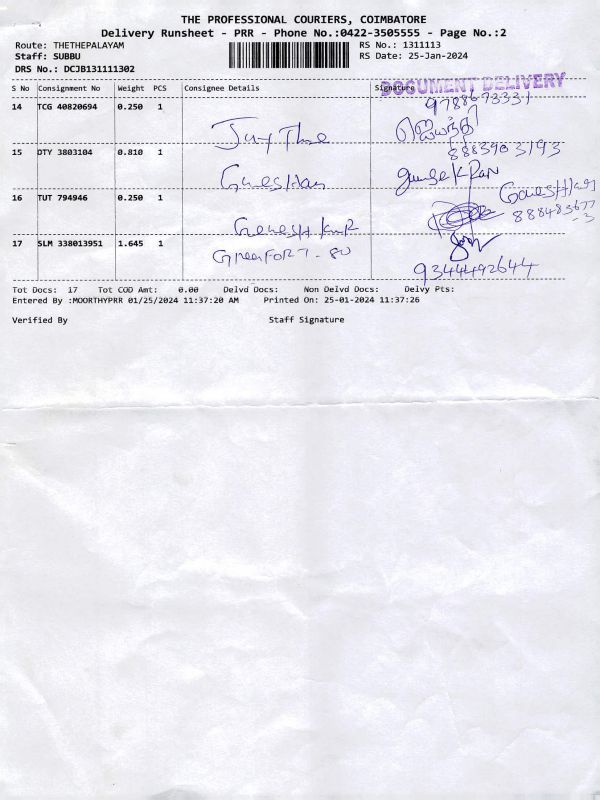 THE PROFESSIONAL COURIERS, COIMBATORE
Delivery Runsheet - PRR - Phone No.:0422-3505555 - Page No.:2
Route: THETHEPALAYAM RS No.: 1311113
Staff: SUBBU RS Date: 25-Jan-2024
DRS No.: DCJB131111302
DOCUMENT DELIVERY
S No Consignment No Weight PCS Consignee Details Signature
9788673331
14 TCG 40820694 0.250 1
ஜெயந்தி
8883903193
15 DTY 3803104 0.810 1
16 TUT 794946 0.250 1
Ganesh
17 SLM 338013951 1.645 1
9344492644
Tot Docs: 17 Tot COD Amt: 0.00 Delvd Docs: Non Delvd Docs: Delvy Pts:
Entered By :MOORTHYPRR 01/25/2024 11:37:20 AM Printed On: 25-01-2024 11:37:26
Verified By Staff Signature